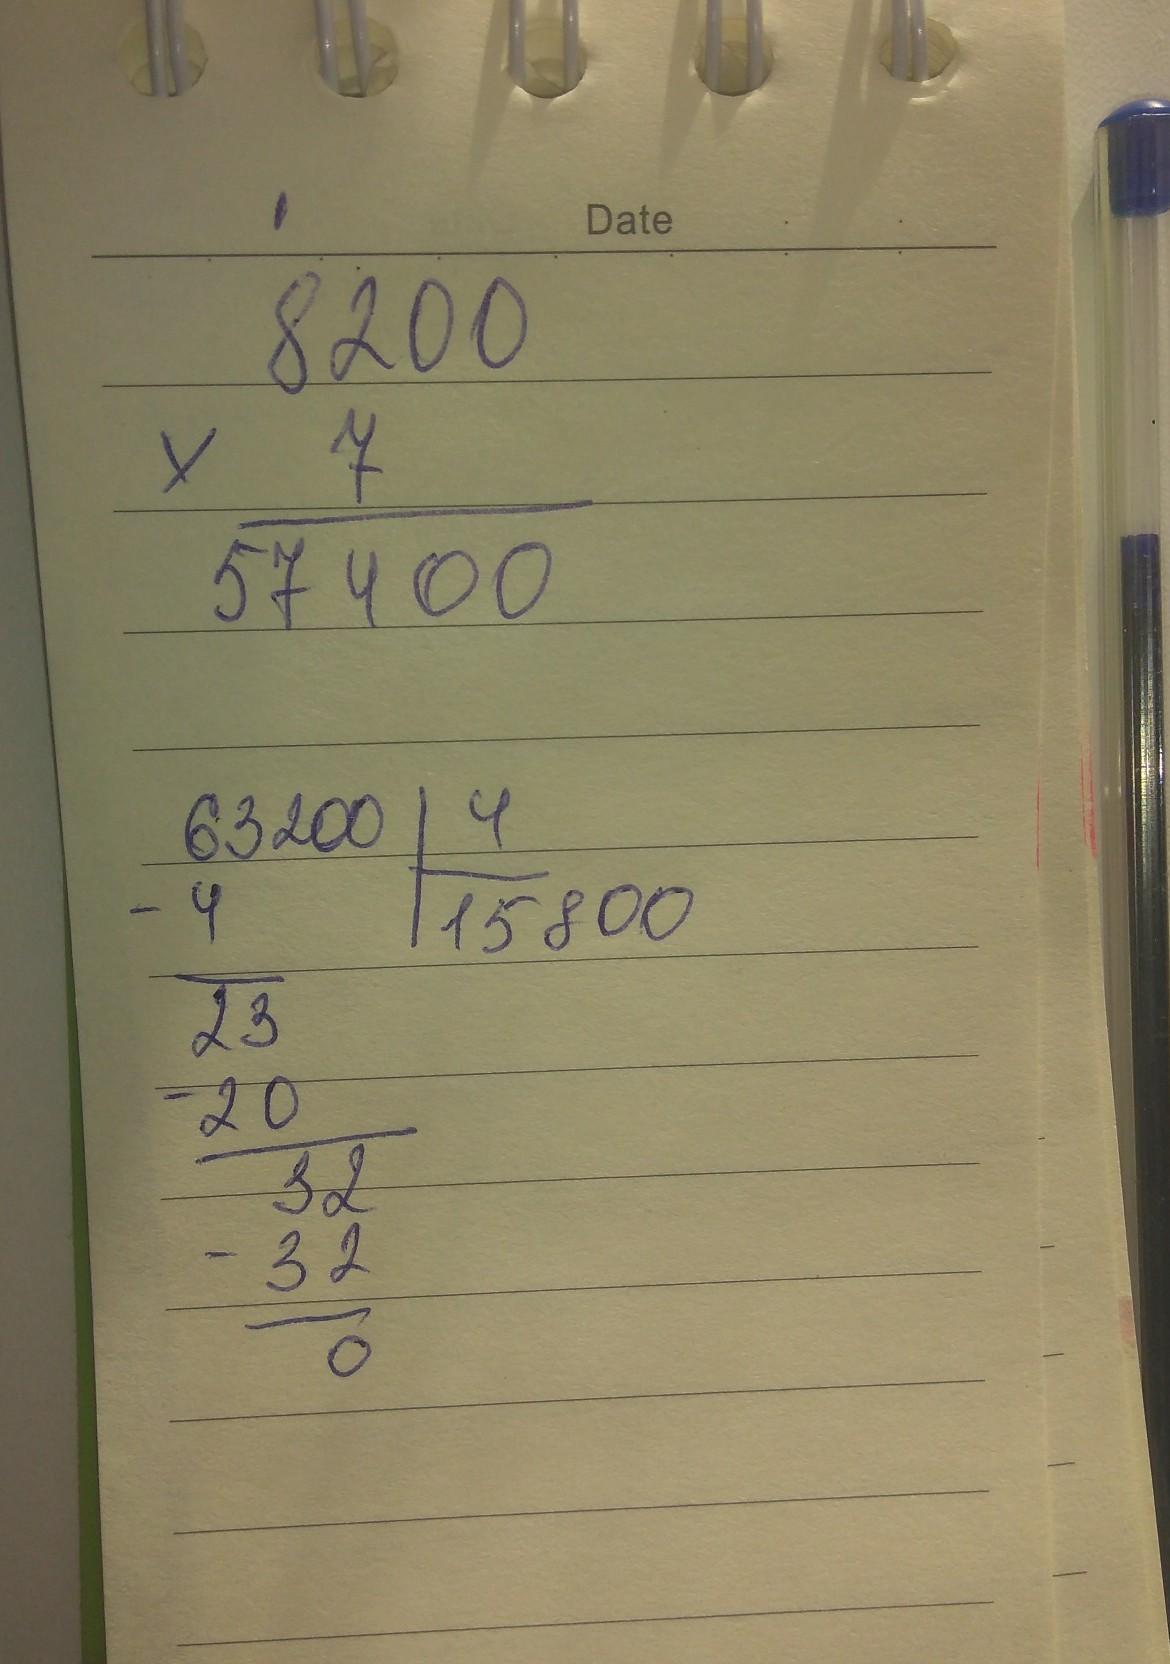 Date
1
8200
x 7
57400
63200 4
- 4 15800
23
- 20
32
- 32
0